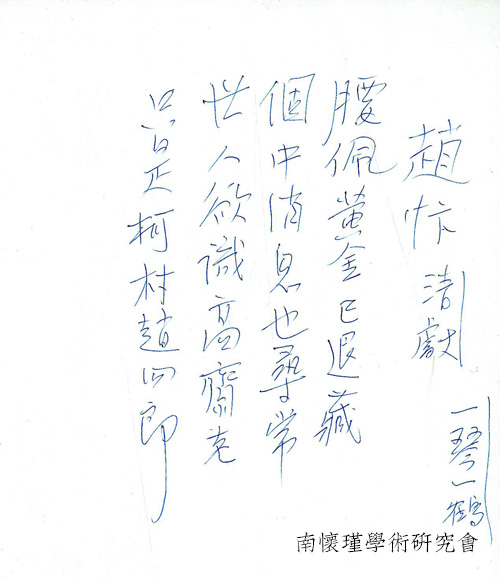 趙忭 清獻 一琴一鶴
腰佩黃金已退藏
個中消息也尋常
世人欲識高齋老
只是柯村趙四郎
南懷瑾學術研究會